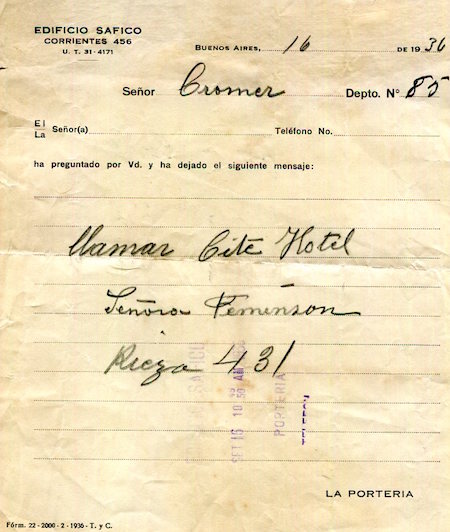 EDIFICIO SAFICO
CORRIENTES 456
U. T. 31-4171
BUENOS AIRES, 16 DE 1936
Señor Cromer Depto. Nº 85
El
La Señor(a) Teléfono No.
ha preguntado por Vd. y ha dejado el siguiente mensaje:
llamar Cite Hotel
Señora Femenson
Pieza 431
SAFICO
SET 16 10 AM
PORTERIA
LA PORTERIA
Fórm. 22 - 2000 - 2 - 1936 - T. y C.